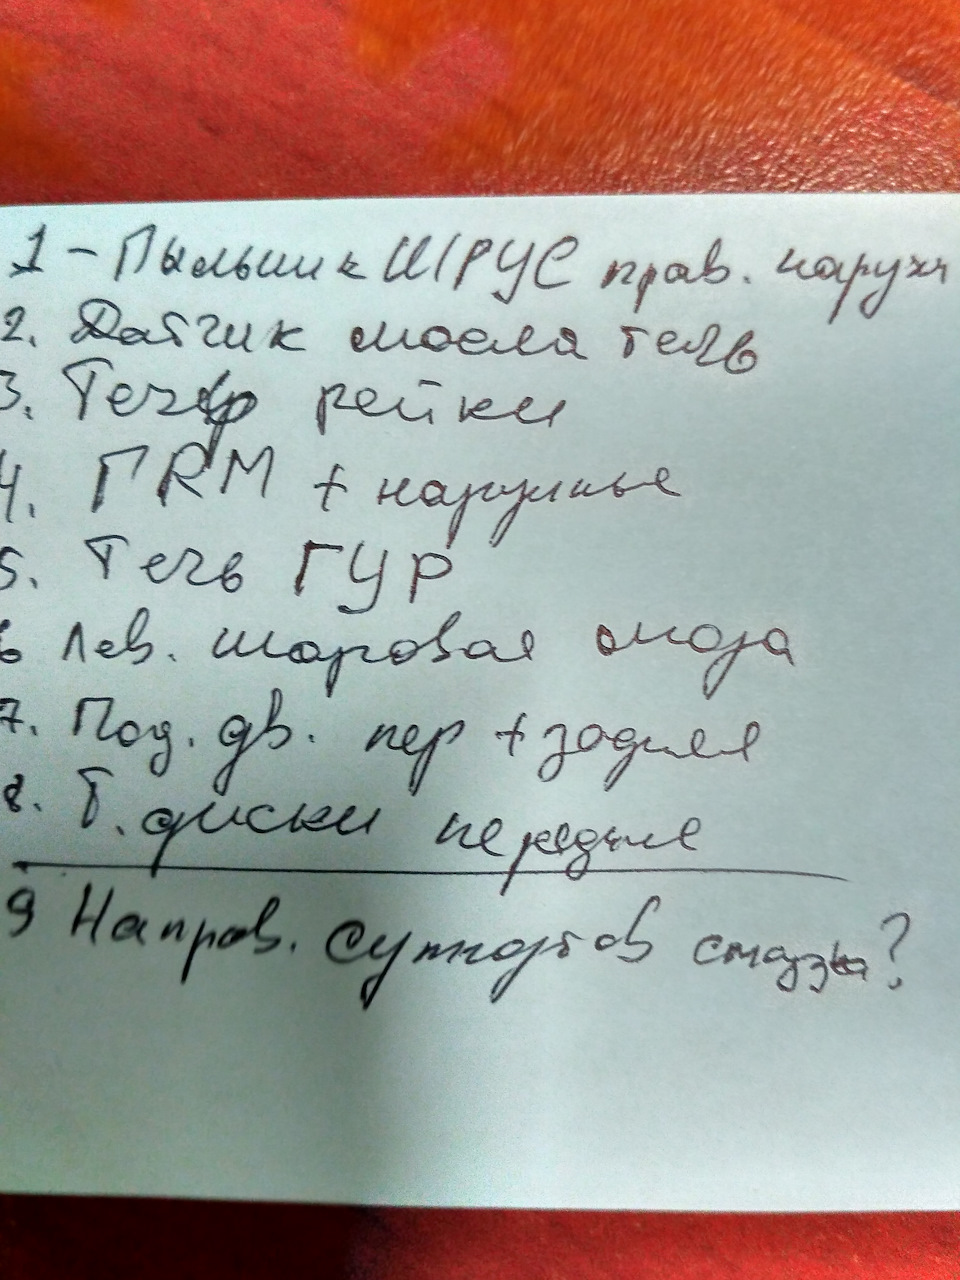 1 - Пыльник ШРУС прав. наружн
2. Датчик масла течь
3. Течь рейки
4. ГRМ + наружные
5. Течь ГУР
6 Лев. шаровая
7. Под. дв. пер + задняя
8. Т. диски передние
9 Направ. суппортов смазка?